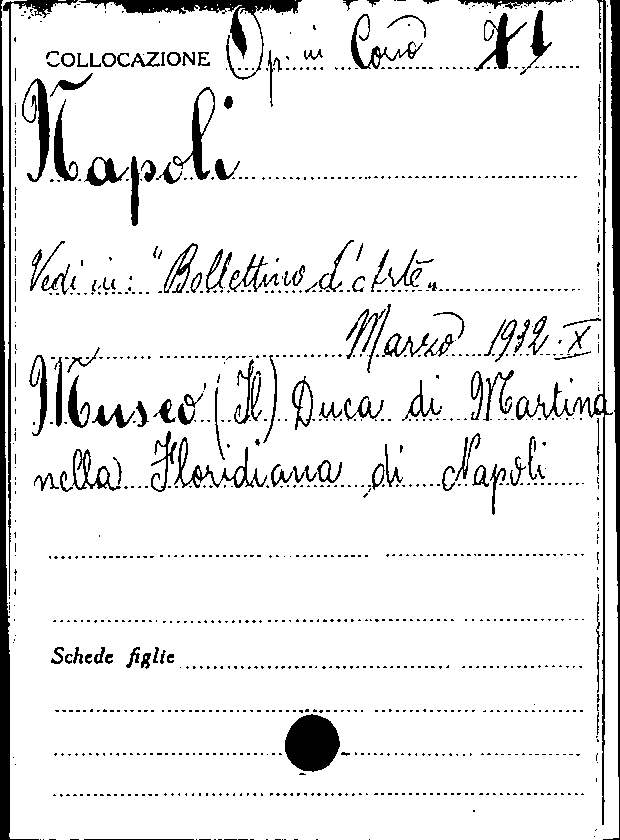 COLLOCAZIONE Op. in Corso
Napoli
Vedi in: "Bollettino d'Arte„
Marzo 1932.X
Museo (Il) Duca di Martina
nella Floridiana di Napoli
Schede figlie